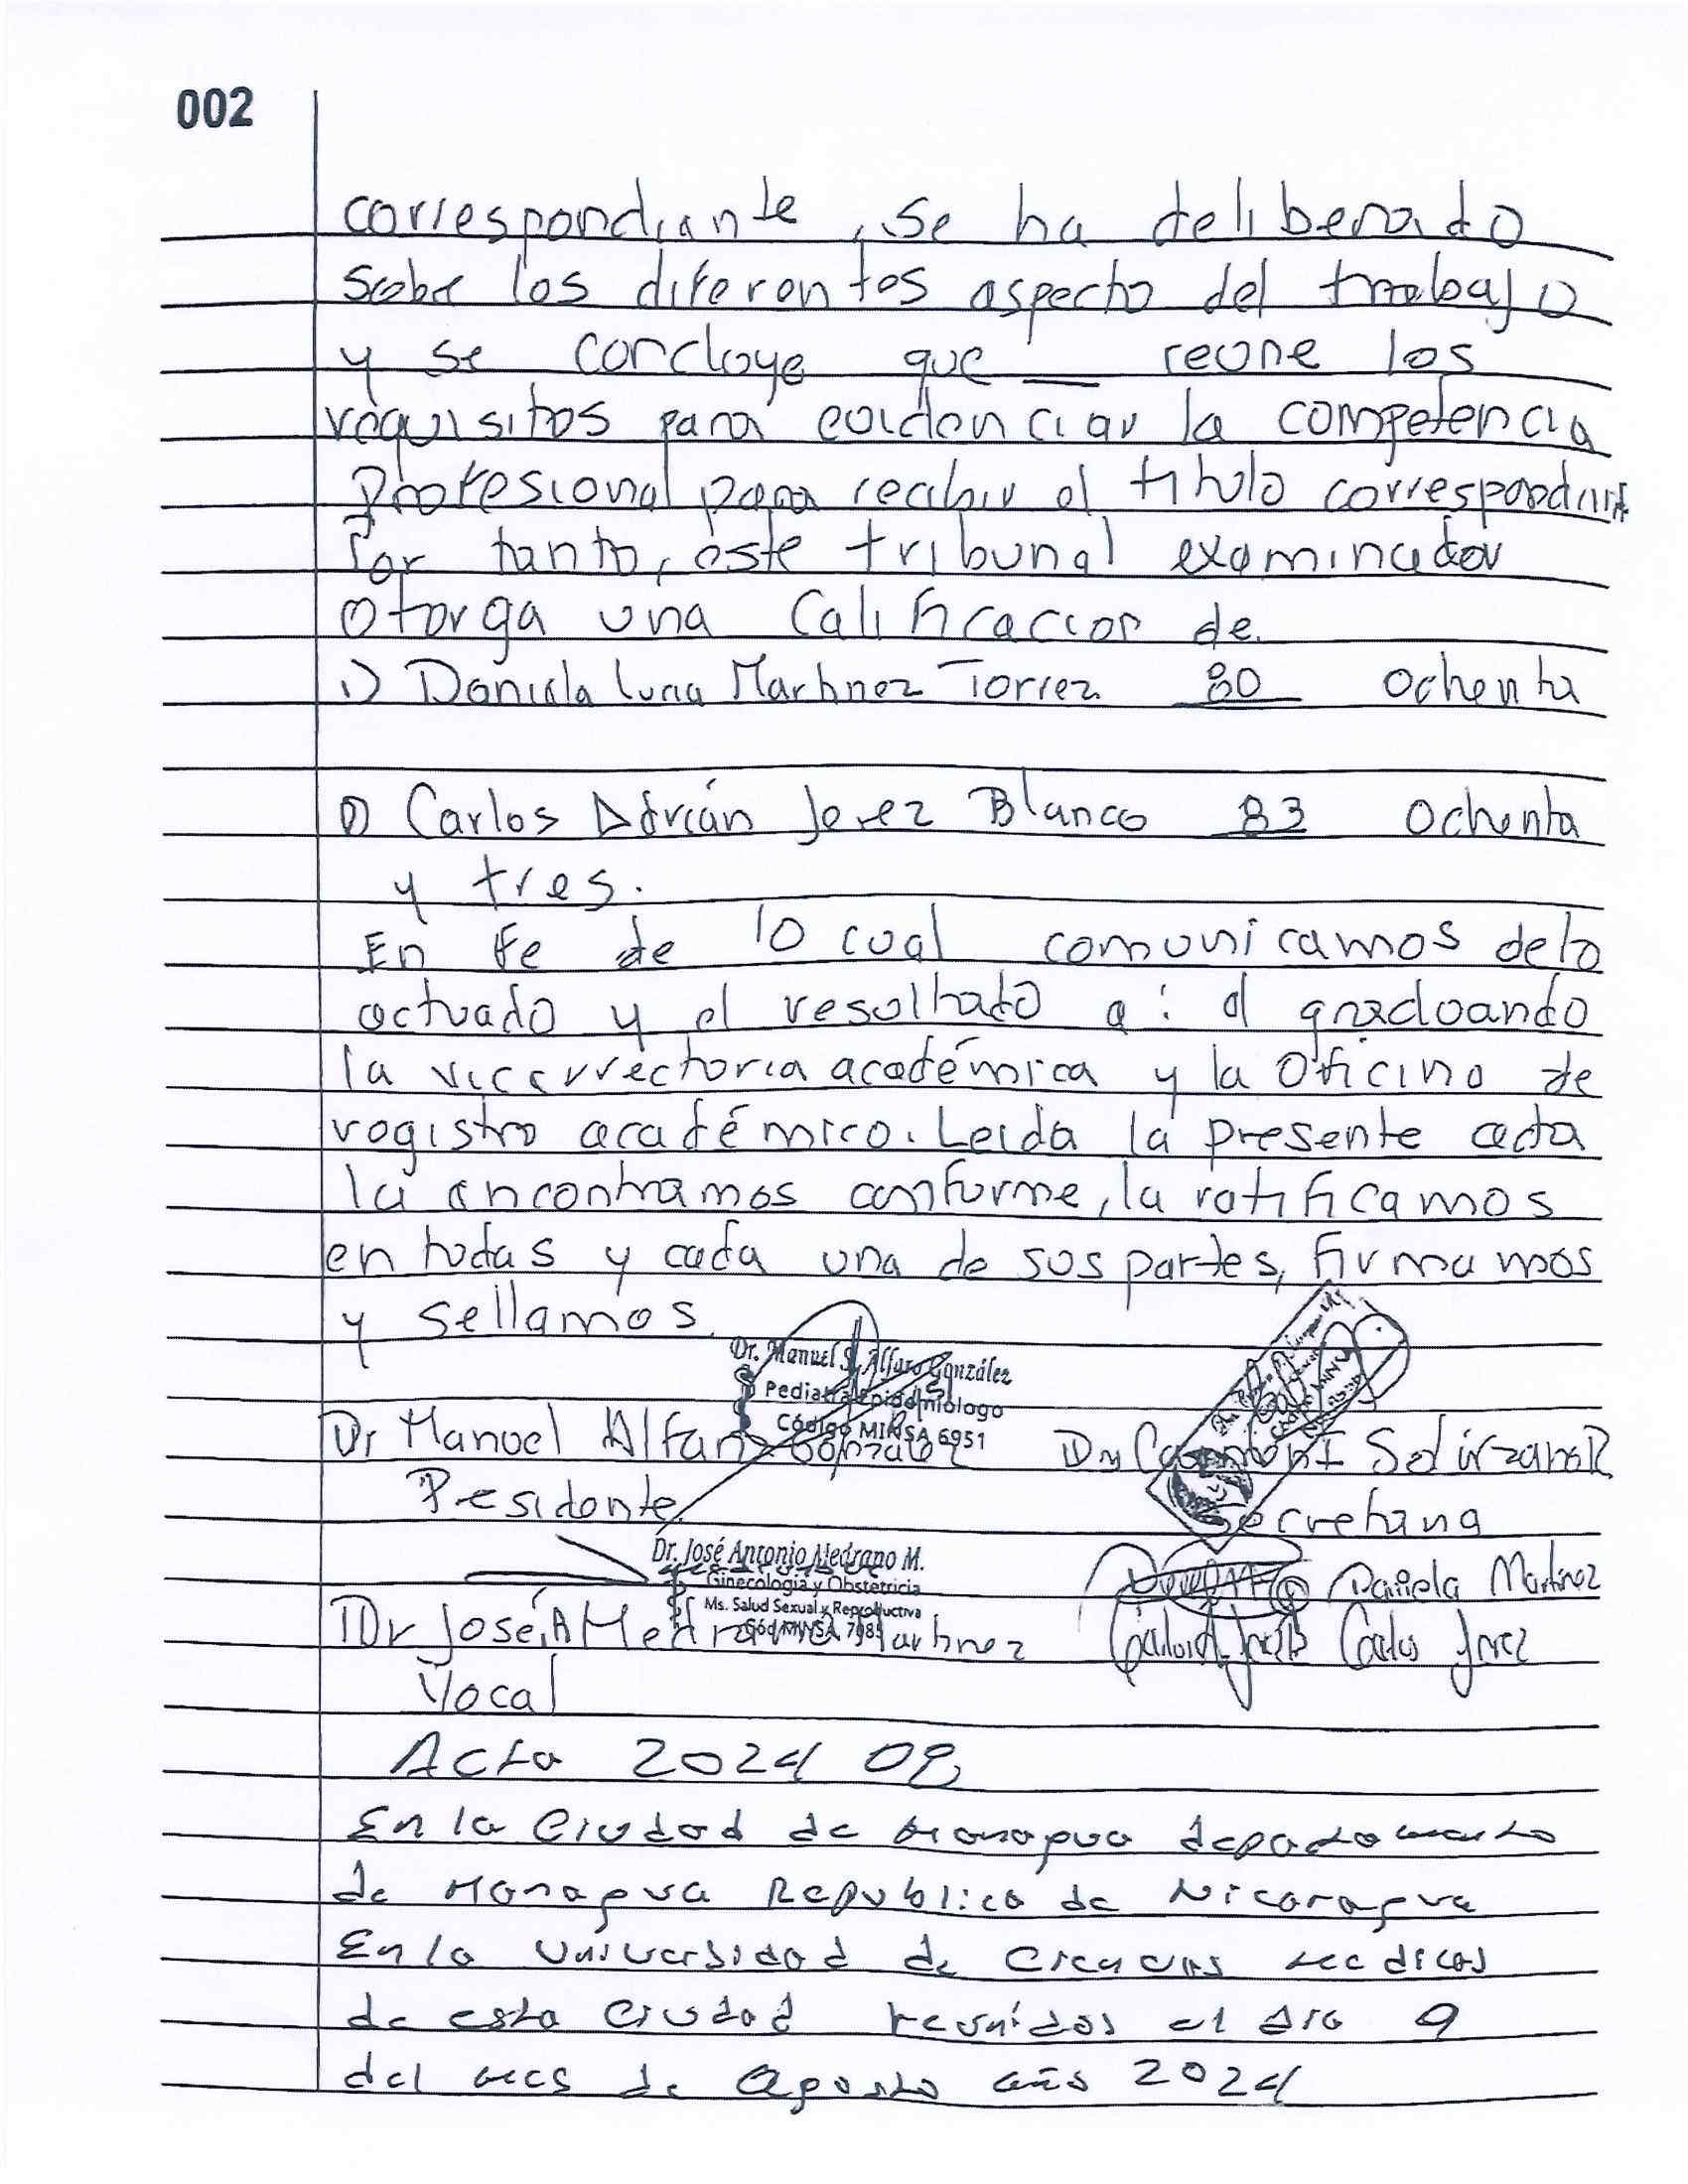 002
correspondiante, se ha deliberado
sobre los diferentes aspecto del trabajo
y se concluye que __ reune los
requisitos para evidenciar la competencia
Profesional para recibir el titulo correspondiente
Por tanto, este tribunal examinador
otorga una Calificaccion de.
1) Daniela Luna Martinez Torrez 80 ochenta
2) Carlos Adrián Jerez Blanco 83 ochenta
y tres.
En fe de lo cual comunicamos de lo
actuado y el resultado a: el graduando
la vicerrectoria académica y la Oficina de
registro académico. Leida la presente acta
la encontramos conforme, la ratificamos
en todas y cada una de sus partes, firmamos
y sellamos.
Dr. Manuel S. Alfaro González
Pediatra Epidemiólogo
Código MINSA 6951
Dr Manuel Alfaro Gonzalez Solórzano R
Presidente Secretaria
Dr. José Antonio Medrano M.
Ginecología y Obstetricia
Ms. Salud Sexual y Reproductiva
Cód MINSA 7985
Daniela Martinez
Dr José A Medrano Martinez Carlos Jerez
Vocal
Acta 2024 02
En la Ciudad de Managua departamento
de Managua Republica de Nicaragua
En la Universidad de Ciencias Medicas
de esta Ciudad reunídos el dia 9
del mes de Agosto año 2024